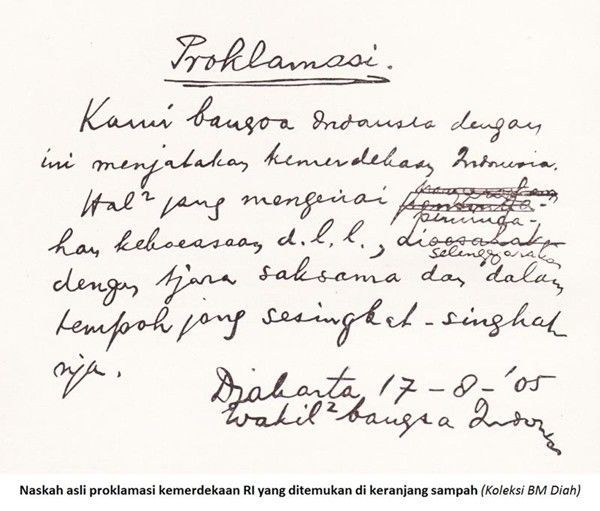 Proklamasi.
Kami bangsa Indonesia dengan
ini menjatakan kemerdekaan Indonesia.
Hal² jang mengenai peminda-
han kekoeasaan d.l.l., diselenggarakan
dengan tjara saksama dan dalam
tempoh jang sesingkat-singkat
nja.
Djakarta 17-8-'05
Wakil² bangsa Indonesia
Naskah asli proklamasi kemerdekaan RI yang ditemukan di keranjang sampah (Koleksi BM Diah)